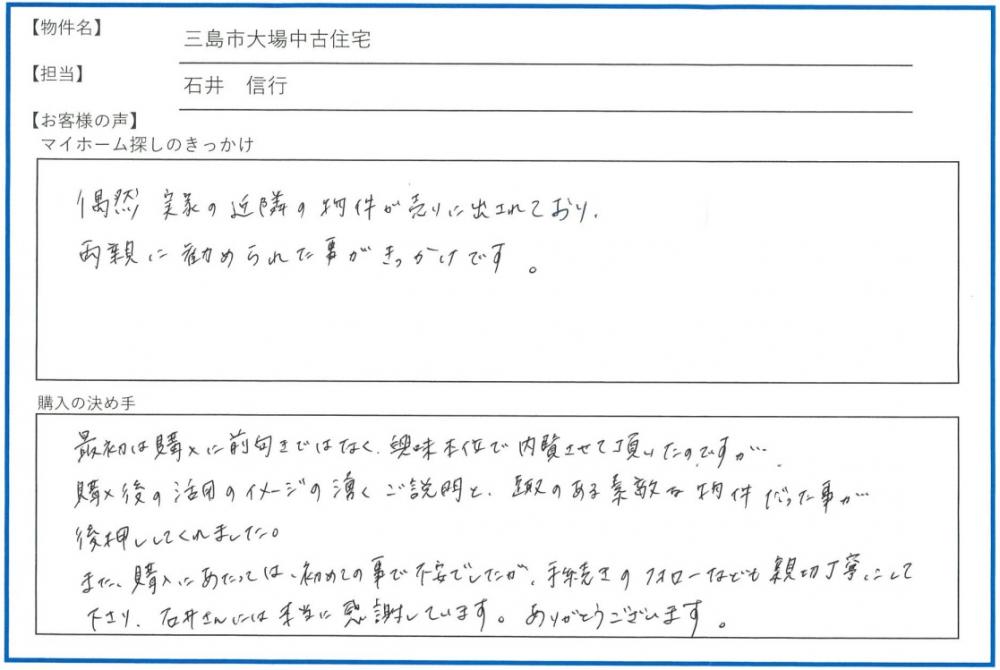 【物件名】
三島市大場中古住宅
【担当】
石井　信行
【お客様の声】
マイホーム探しのきっかけ
偶然 実家の近隣の物件が売りに出されており、
両親に勧められた事がきっかけです。
購入の決め手
最初は購入に前向きではなく、興味本位で内覧させて頂いたのですが…
購入後の活用のイメージの湧くご説明と、趣のある素敵な物件だった事が
後押ししてくれました。
また、購入にあたっては、初めての事で不安でしたが、手続きのフォローなども親切丁寧にして
下さり、石井さんには本当に感謝しています。ありがとうございます。